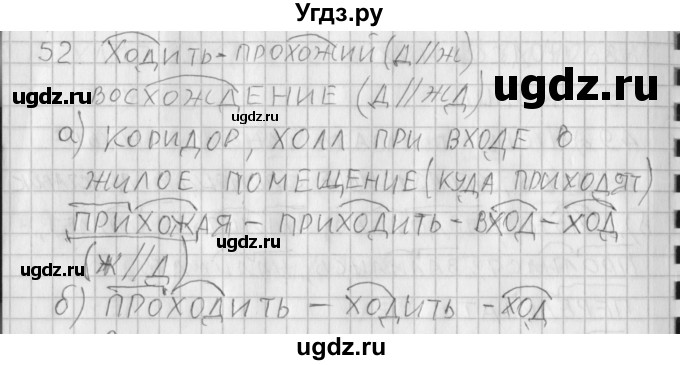 Угдз.ру
52. ХОДИТЬ - ПРОХОЖИЙ (Д//Ж)
ugdz.ru
ВОСХОЖДЕНИЕ (Д//ЖД)
ugdz.ru
ugdz.ru
ugdz.ru
а) КОРИДОР, ХОЛЛ ПРИ ВХОДЕ В
ЖИЛОЕ ПОМЕЩЕНИЕ (КУДА ПРИХОДЯТ)
ugdz.ru
ugdz.ru
ПРИХОЖАЯ - ПРИХОДИТЬ - ВХОД - ХОД
ugdz.ru
(Ж//Д)
ugdz.ru
б) ПРОХОДИТЬ - ХОДИТЬ - ХОД
ugdz.ru